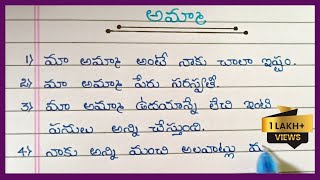 అమ్మ
1) మా అమ్మ అంటే నాకు చాలా ఇష్టం.
2) మా అమ్మ పేరు సరస్వతి.
3) మా అమ్మ ఉదయాన్నే లేచి ఇంటి
పనులు అన్ని చేస్తుంది.
4) నాకు అన్ని మంచి అలవాట్లు
1 LAKH+
VIEWS